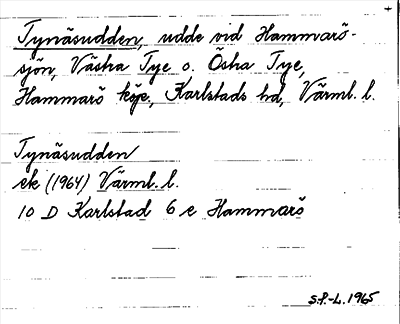 Tynäsudden, udde vid Hammarö-
sjön, Västra Tye o. Östra Tye,
Hammarö köp., Karlstads hd, Värml. l.
Tynäsudden
ek (1964) Värml. l.
10 D Karlstad 6 e Hammarö
S.P.-L. 1965